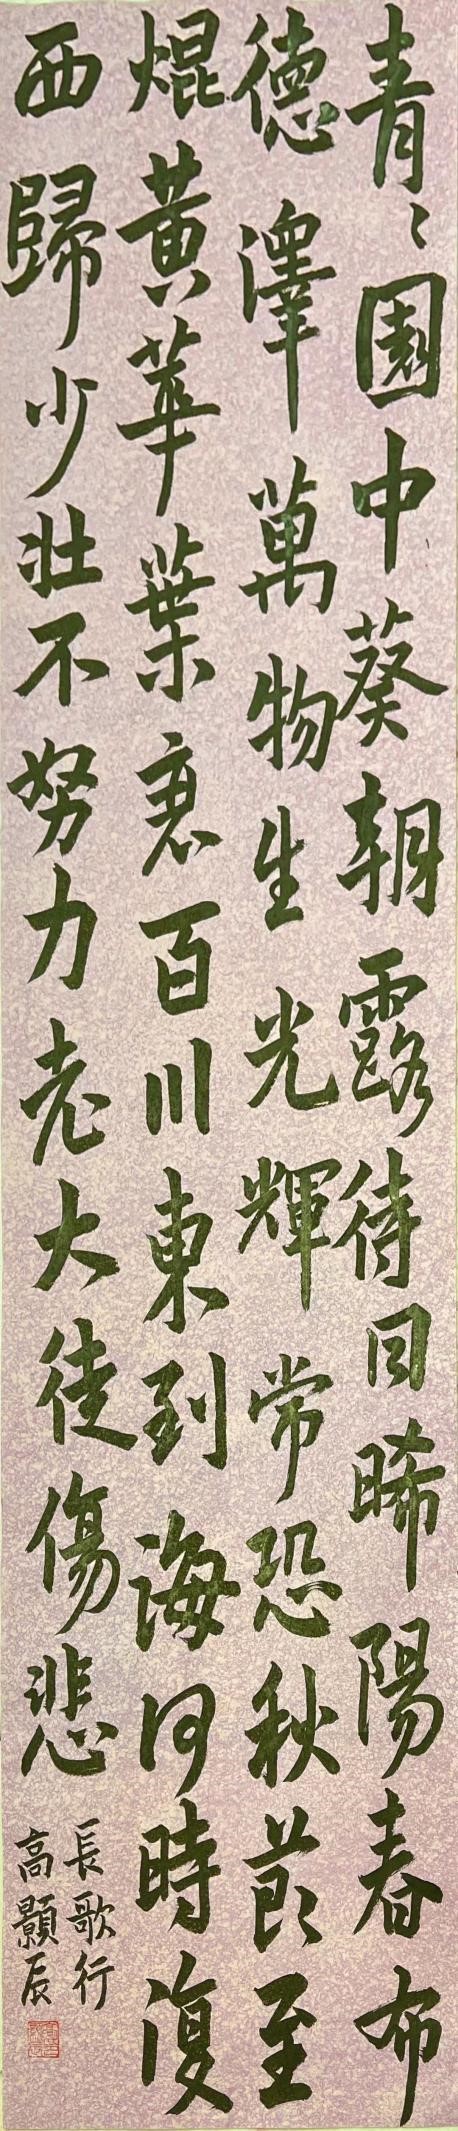 青〻園中葵朝露待日晞陽春布
德澤萬物生光輝常恐秋節至
焜黃華葉衰百川東到海何時復
西歸少壯不努力老大徒傷悲
長歌行
高顥辰